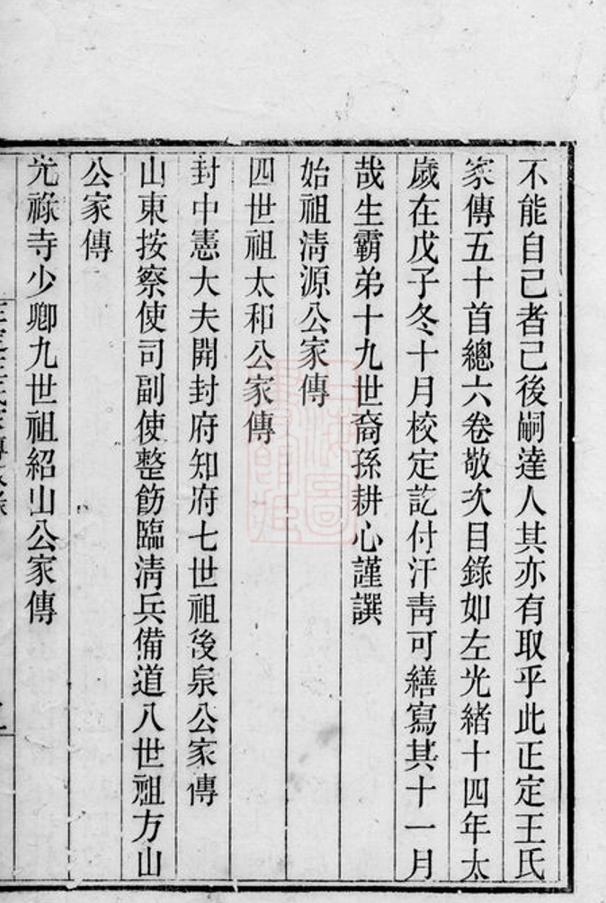 不能自己者己後嗣達人其亦有取乎此正定王氏
家傳五十首總六卷敬次目錄如左光緒十四年太
歲在戊子冬十月校定訖付汗靑可繕寫其十一月
哉生霸弟十九世裔孫耕心謹譔
始祖淸源公家傳
四世祖太和公家傳
封中憲大夫開封府知府七世祖後泉公家傳
山東按察使司副使整飭臨淸兵備道八世祖方山
公家傳
光祿寺少卿九世祖紹山公家傳